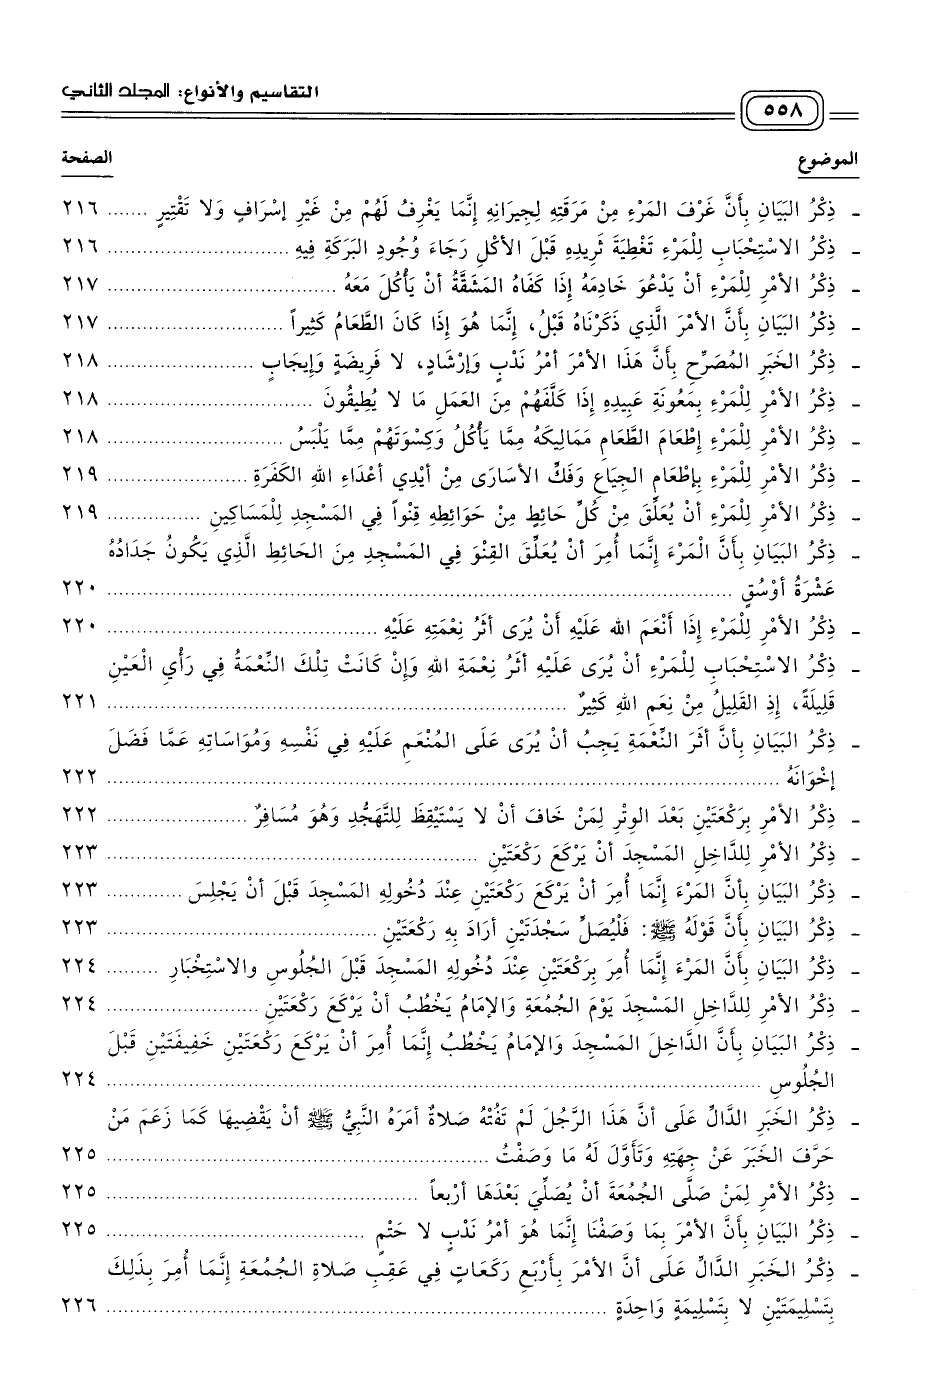 التقاسيم والأنواع: المجلد الثاني
٥٥٨
الموضوع الصفحة
ـ ذِكْرُ البَيَانِ بِأَنَّ غَرْفَ المَرْءِ مِنْ مَرَقَتِهِ لِجِيرَانِهِ إِنَّمَا يَغْرِفُ لَهُمْ مِنْ غَيْرِ إِسْرَافٍ وَلا تَقْتِيرٍ ....... ٢١٦
ـ ذِكْرُ الاسْتِحْبَابِ لِلْمَرْءِ تَغْطِيَةَ ثَرِيدِهِ قَبْلَ الأَكْلِ رَجَاءَ وُجُودِ البَرَكَةِ فِيهِ ....... ٢١٦
ـ ذِكْرُ الأَمْرِ لِلْمَرْءِ أَنْ يَدْعُوَ خَادِمَهُ إِذَا كَفَاهُ المَشَقَّةُ أَنْ يَأْكُلَ مَعَهُ ....... ٢١٧
ـ ذِكْرُ البَيَانِ بِأَنَّ الأَمْرَ الَّذِي ذَكَرْنَاهُ قَبْلُ، إِنَّمَا هُوَ إِذَا كَانَ الطَّعَامُ كَثِيراً ....... ٢١٧
ـ ذِكْرُ الخَبَرِ المُصَرِّحِ بِأَنَّ هَذَا الأَمْرَ أَمْرُ نَدْبٍ وَإِرْشَادٍ، لا فَرِيضَةٍ وَإِيجَابٍ ....... ٢١٨
ـ ذِكْرُ الأَمْرِ لِلْمَرْءِ بِمَعُونَةِ عَبِيدِهِ إِذَا كَلَّفَهُمْ مِنَ العَمَلِ مَا لا يُطِيقُونَ ....... ٢١٨
ـ ذِكْرُ الأَمْرِ لِلْمَرْءِ إِطْعَامَ الطَّعَامِ مَمَالِيكَهُ مِمَّا يَأْكُلُ وَكِسْوَتَهُمْ مِمَّا يَلْبَسُ ....... ٢١٨
ـ ذِكْرُ الأَمْرِ لِلْمَرْءِ بِإِطْعَامِ الجِيَاعِ وَفَكِّ الأَسَارَى مِنْ أَيْدِي أَعْدَاءِ اللهِ الكَفَرَةِ ....... ٢١٩
ـ ذِكْرُ الأَمْرِ لِلْمَرْءِ أَنْ يُعَلِّقَ مِنْ كُلِّ حَائِطٍ مِنْ حَوَائِطِهِ قِنْواً فِي المَسْجِدِ لِلْمَسَاكِينِ ....... ٢١٩
ـ ذِكْرُ البَيَانِ بِأَنَّ الْمَرْءَ إِنَّمَا أُمِرَ أَنْ يُعَلِّقَ القِنْوَ فِي المَسْجِدِ مِنَ الحَائِطِ الَّذِي يَكُونُ جَدَادُهُ
عَشْرَةُ أَوْسُقٍ ....... ٢٢٠
ـ ذِكْرُ الأَمْرِ لِلْمَرْءِ إِذَا أَنْعَمَ الله عَلَيْهِ أَنْ يُرَى أَثَرُ نِعْمَتِهِ عَلَيْهِ ....... ٢٢٠
ـ ذِكْرُ الاسْتِحْبَابِ لِلْمَرْءِ أَنْ يُرَى عَلَيْهِ أَثَرُ نِعْمَةِ اللهِ وَإِنْ كَانَتْ تِلْكَ النِّعْمَةُ فِي رَأْيِ الْعَيْنِ
قَلِيلَةً، إِذِ القَلِيلُ مِنْ نِعَمِ اللهِ كَثِيرٌ ....... ٢٢١
ـ ذِكْرُ البَيَانِ بِأَنَّ أَثَرَ النِّعْمَةِ يَجِبُ أَنْ يُرَى عَلَى المُنْعَمِ عَلَيْهِ فِي نَفْسِهِ وَمُوَاسَاتِهِ عَمَّا فَضَلَ
إِخْوَانَهُ ....... ٢٢٢
ـ ذِكْرُ الأَمْرِ بِرَكْعَتَيْنِ بَعْدَ الوِتْرِ لِمَنْ خَافَ أَنْ لا يَسْتَيْقِظَ لِلتَّهَجُّدِ وَهُوَ مُسَافِرٌ ....... ٢٢٢
ـ ذِكْرُ الأَمْرِ لِلدَّاخِلِ المَسْجِدَ أَنْ يَرْكَعَ رَكْعَتَيْنِ ....... ٢٢٣
ـ ذِكْرُ البَيَانِ بِأَنَّ المَرْءَ إِنَّمَا أُمِرَ أَنْ يَرْكَعَ رَكْعَتَيْنِ عِنْدَ دُخُولِهِ المَسْجِدَ قَبْلَ أَنْ يَجْلِسَ ....... ٢٢٣
ـ ذِكْرُ البَيَانِ بِأَنَّ قَوْلَهُ ﷺ: فَلْيُصَلِّ سَجْدَتَيْنِ أَرَادَ بِهِ رَكْعَتَيْنِ ....... ٢٢٣
ـ ذِكْرُ البَيَانِ بِأَنَّ المَرْءَ إِنَّمَا أُمِرَ بِرَكْعَتَيْنِ عِنْدَ دُخُولِهِ المَسْجِدَ قَبْلَ الجُلُوسِ والاسْتِخْبَارِ ....... ٢٢٤
ـ ذِكْرُ الأَمْرِ لِلدَّاخِلِ المَسْجِدَ يَوْمَ الجُمُعَةِ وَالإِمَامُ يَخْطُبُ أَنْ يَرْكَعَ رَكْعَتَيْنِ ....... ٢٢٤
ـ ذِكْرُ البَيَانِ بِأَنَّ الدَّاخِلَ المَسْجِدَ وَالإِمَامُ يَخْطُبُ إِنَّمَا أُمِرَ أَنْ يَرْكَعَ رَكْعَتَيْنِ خَفِيفَتَيْنِ قَبْلَ
الجُلُوسِ ....... ٢٢٤
ـ ذِكْرُ الخَبَرِ الدَّالِّ عَلَى أَنَّ هَذَا الرَّجُلَ لَمْ تَفُتْهُ صَلاةٌ أَمَرَهُ النَّبِيُّ ﷺ أَنْ يَقْضِيَهَا كَمَا زَعَمَ مَنْ
حَرَّفَ الخَبَرَ عَنْ جِهَتِهِ وَتَأَوَّلَ لَهُ مَا وَصَفْتُ ....... ٢٢٥
ـ ذِكْرُ الأَمْرِ لِمَنْ صَلَّى الجُمُعَةَ أَنْ يُصَلِّيَ بَعْدَهَا أَرْبعاً ....... ٢٢٥
ـ ذِكْرُ البَيَانِ بِأَنَّ الأَمْرَ بِمَا وَصَفْنَا إِنَّمَا هُوَ أَمْرُ نَدْبٍ لا حَتْمٍ ....... ٢٢٥
ـ ذِكْرُ الخَبَرِ الدَّالِّ عَلَى أَنَّ الأَمْرَ بِأَرْبَعِ رَكَعَاتٍ فِي عَقِبِ صَلاةِ الجُمُعَةِ إِنَّمَا أُمِرَ بِذَلِكَ
بِتَسْلِيمَتَيْنِ لا بِتَسْلِيمَةٍ وَاحِدَةٍ ....... ٢٢٦